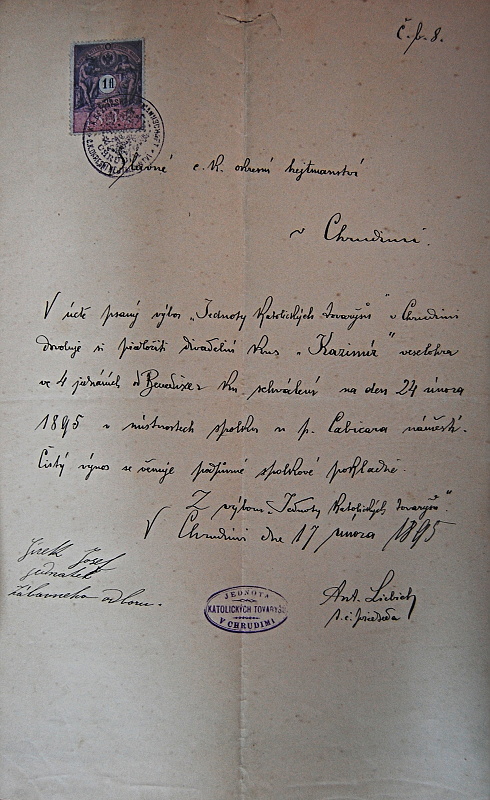 č. p. 8.
1 fl
Slavné c. k. okresní hejtmanství
v Chrudimi.
V úctě psaný výbor „Jednoty katolických tovaryšů" v Chrudimi
dovoluje si předložiti divadelní kus „Kazimír" veselohra
ve 4 jednáních od Benedixe k schválení na den 24 února
1895 v místnostech spolku u p. Cabicara náměstí.
Čistý výnos se věnuje podpůrné spolkové pokladně.
Z výboru „Jednoty katolických tovaryšů".
V Chrudimi dne 17 února 1895
Jirek Josef
jednatel
zábavného odboru.
JEDNOTA
KATOLICKÝCH TOVARYŠŮ
V CHRUDIMI
Ant. Liebich
t. č. předseda